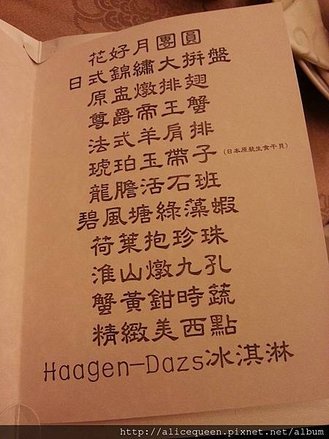 花好月團圓
日式錦繡大拼盤
原盅燉排翅
尊爵帝王蟹
法式羊肩排
琥珀玉帶子(日本原裝生食干貝)
龍膽活石斑
碧風塘綠藻蝦
荷葉抱珍珠
淮山燉九孔
蟹黃鉗時蔬
精緻美西點
Haagen-Dazs冰淇淋
http://alicequeen.pixnet.net/album